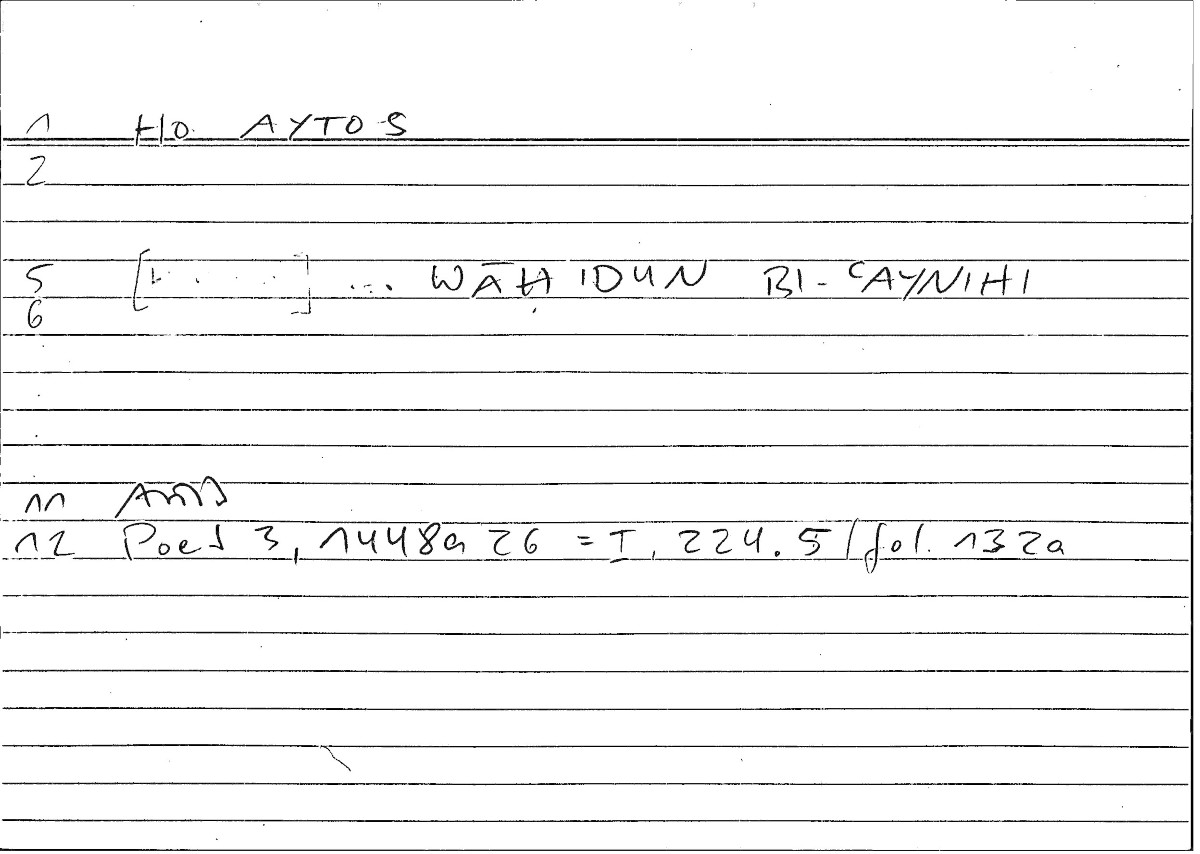 1 HO AYTOS
2
5 [ ] ... WĀḤIDUN BI-ʿAYNIHI
6
11
12 Poet 3, 1448a 26 = I, 224.5 / fol. 132a